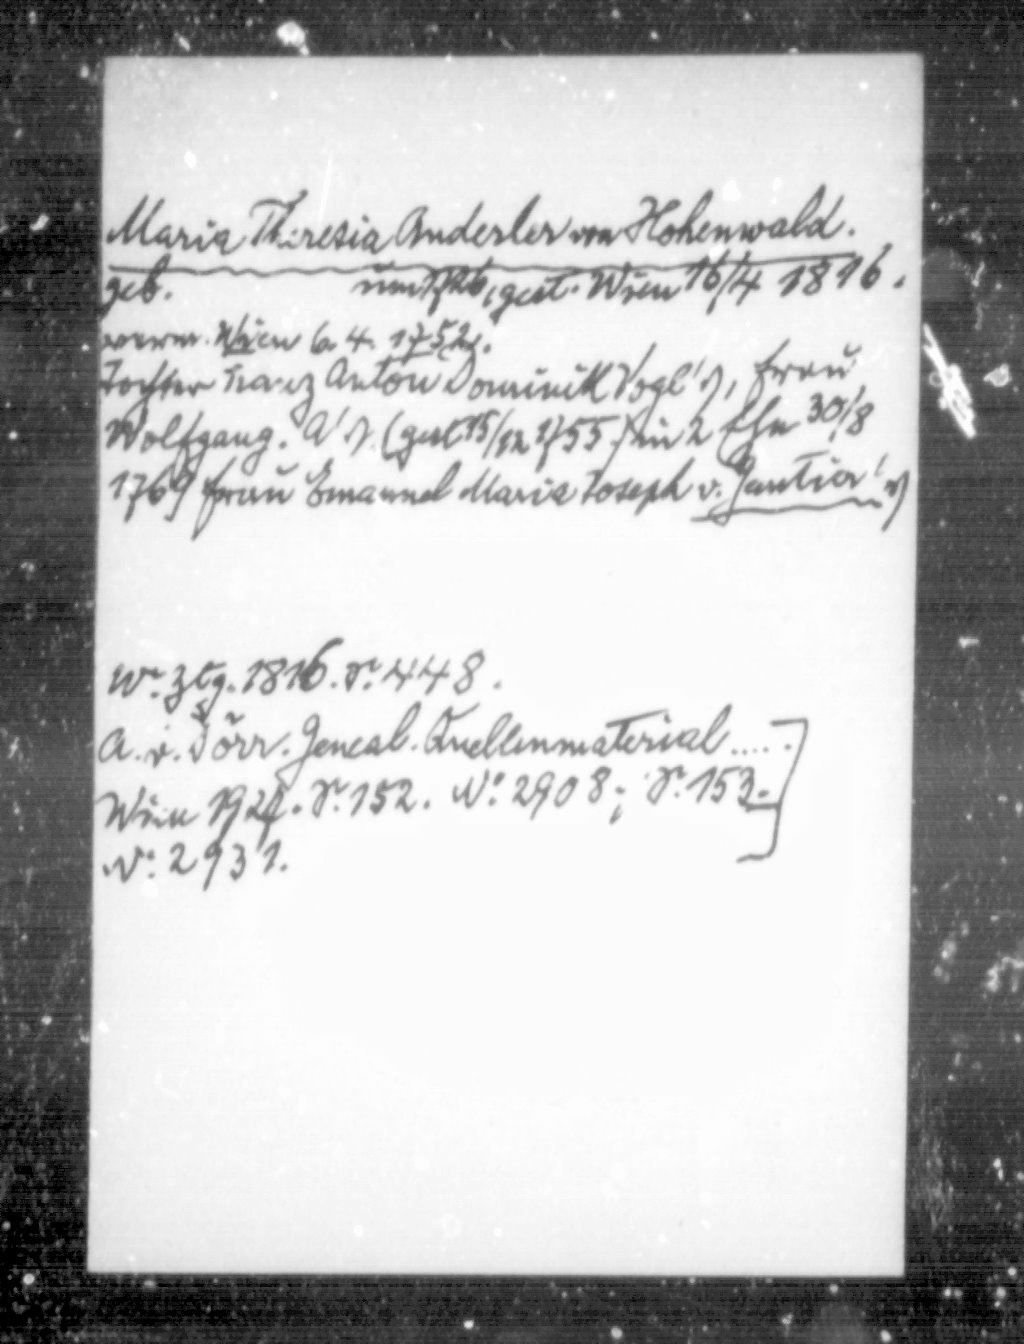 Maria Theresia Anderler von Hohenwald.
geb. um 1726, gest. Wien 16/4 1816.
verm. Wien 6. 4. 1752.
Tochter Franz Anton Dominik Vogl's, Frau
Wolfgang. A's. (gest 15/12 1755.) in 2 Ehe 30/8
1769 Frau Emanuel Maria Joseph v. Gautier's
Wr. Ztg. 1816. S. 448.
A. v. Dörr. Geneal. Quellenmaterial .....
Wien 1927. S. 152. No. 2908; S. 153.
No. 2931.